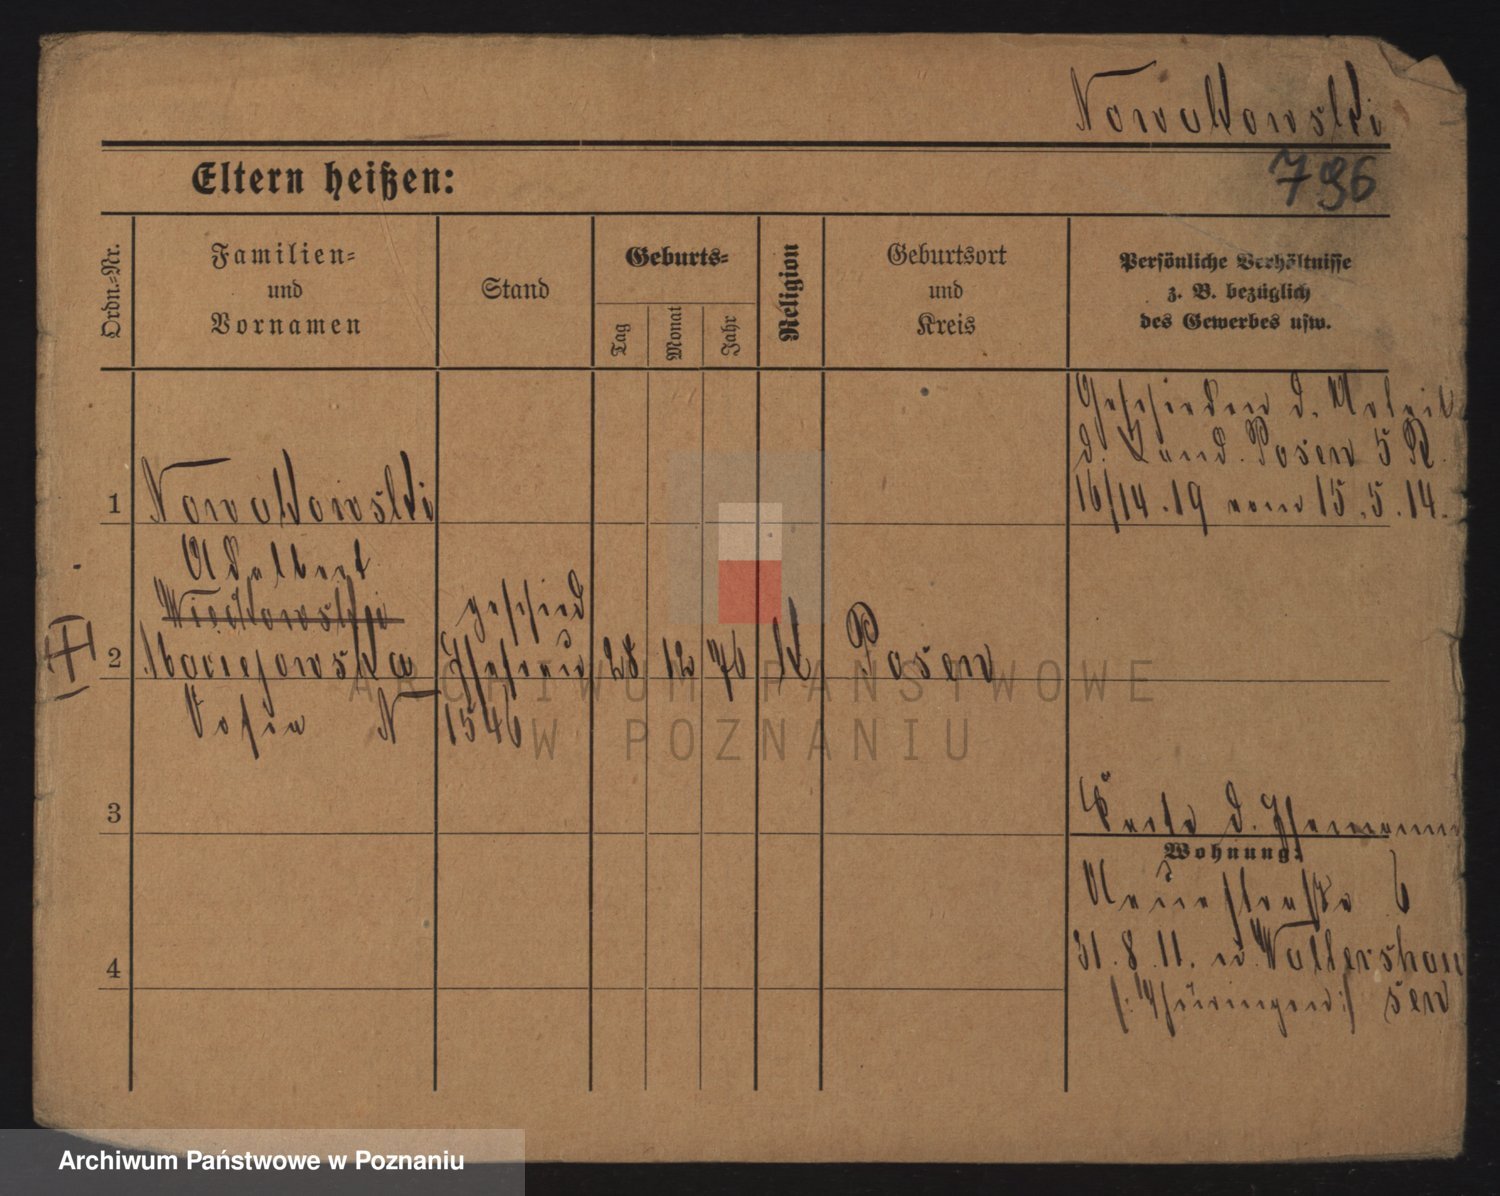 Nowakowski
Eltern heißen:
796
Ordn.-Nr.
Familien-
und
Vornamen
Stand
Geburts-
Tag
Monat
Jahr
Religion
Geburtsort
und
Kreis
Persönliche Verhältnisse
z. B. bezüglich
des Gewerbes usw.
Geschieden d.
d. Land. Posen 5 R.
16/14.19 vom 15.5.14.
1
Nowakowski
Adalbert
geschied
2
Maciejowska
Ehefrau
28 12 76 K Posen
N
1546
3
Karte d. Ehemanns
Wohnung:
Neuestraße 6
31.8.11. n. Woltershau
/: Thüringen :/ sen
4
ARCHIWUM PAŃSTWOWE
W POZNANIU
Archiwum Państwowe w Poznaniu